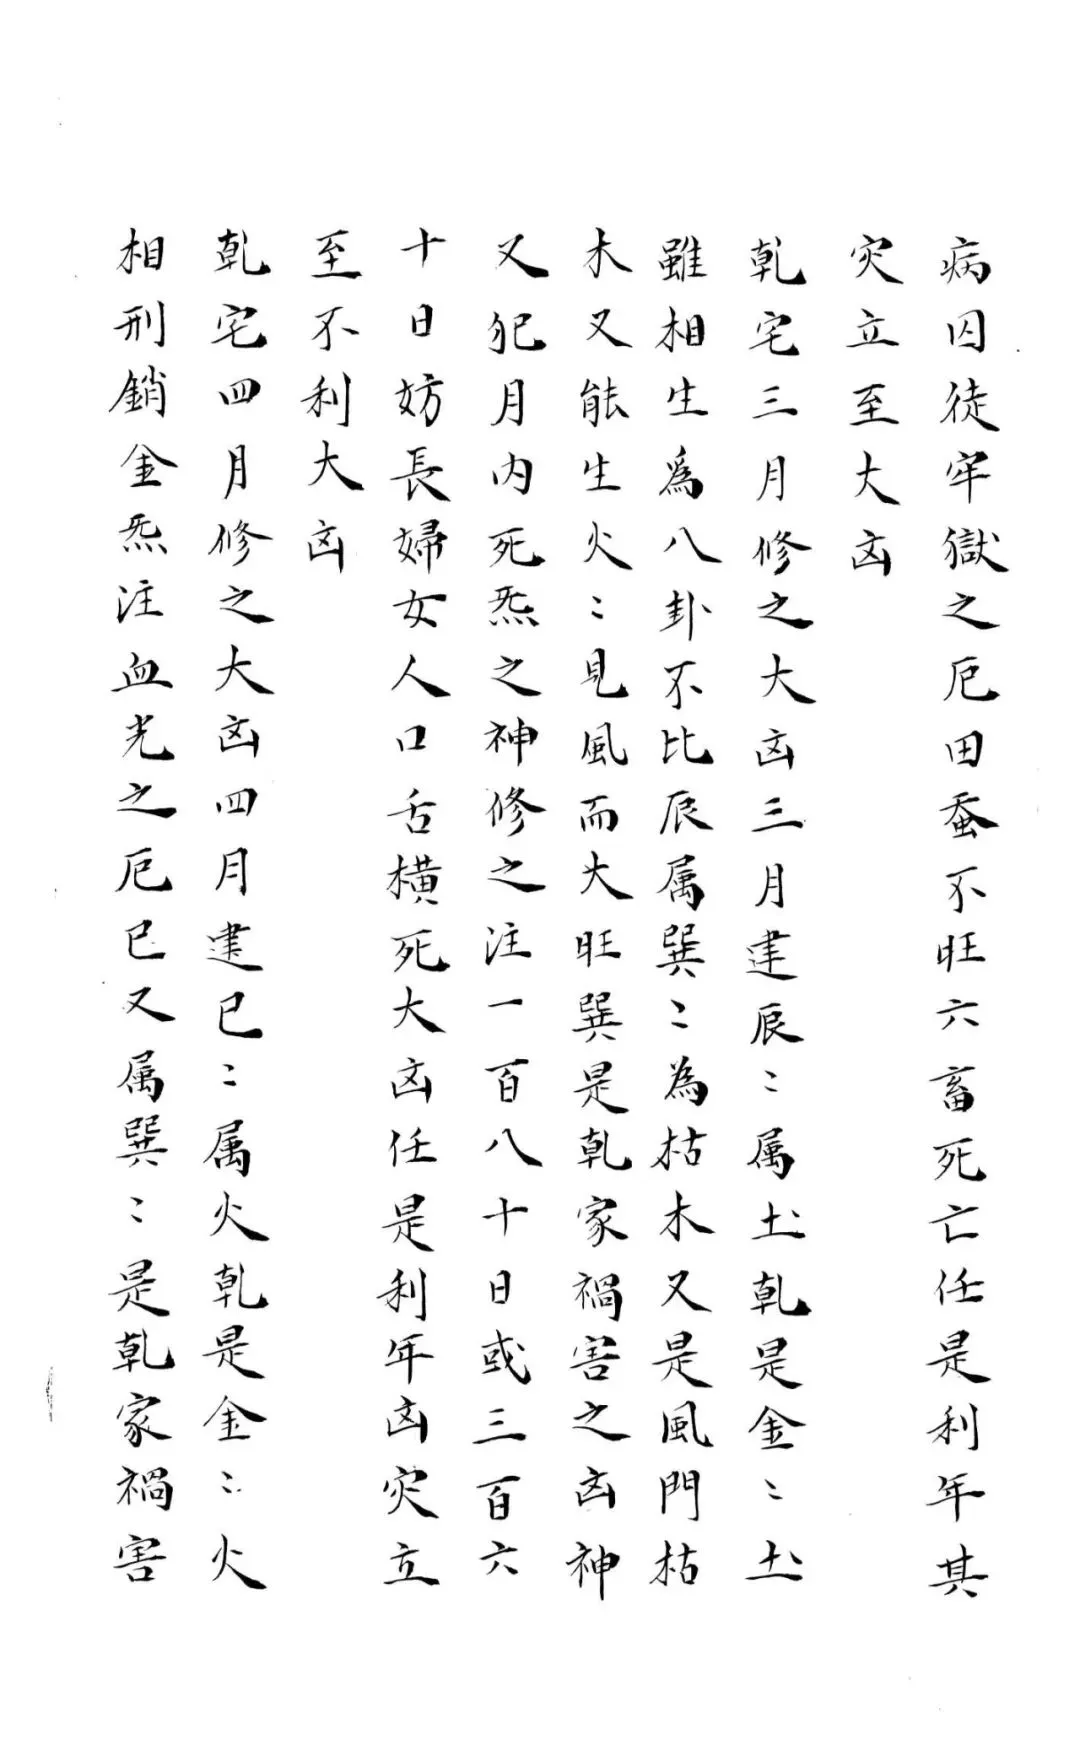 病囚徒牢獄之厄田蚕不旺六畜死亡任是利年其
灾立至大凶
乹宅三月修之大凶三月建辰〻属土乹是金〻土
雖相生爲八卦不比辰属巽〻為枯木又是風門枯
木又能生火〻見風而大旺巽是乹家禍害之凶神
又犯月内死炁之神修之注一百八十日或三百六
十日妨長婦女人口舌横死大凶任是利年凶灾立
至不利大凶
乹宅四月修之大凶四月建巳〻属火乹是金〻火
相刑銷金炁注血光之厄巳又属巽〻是乹家禍害